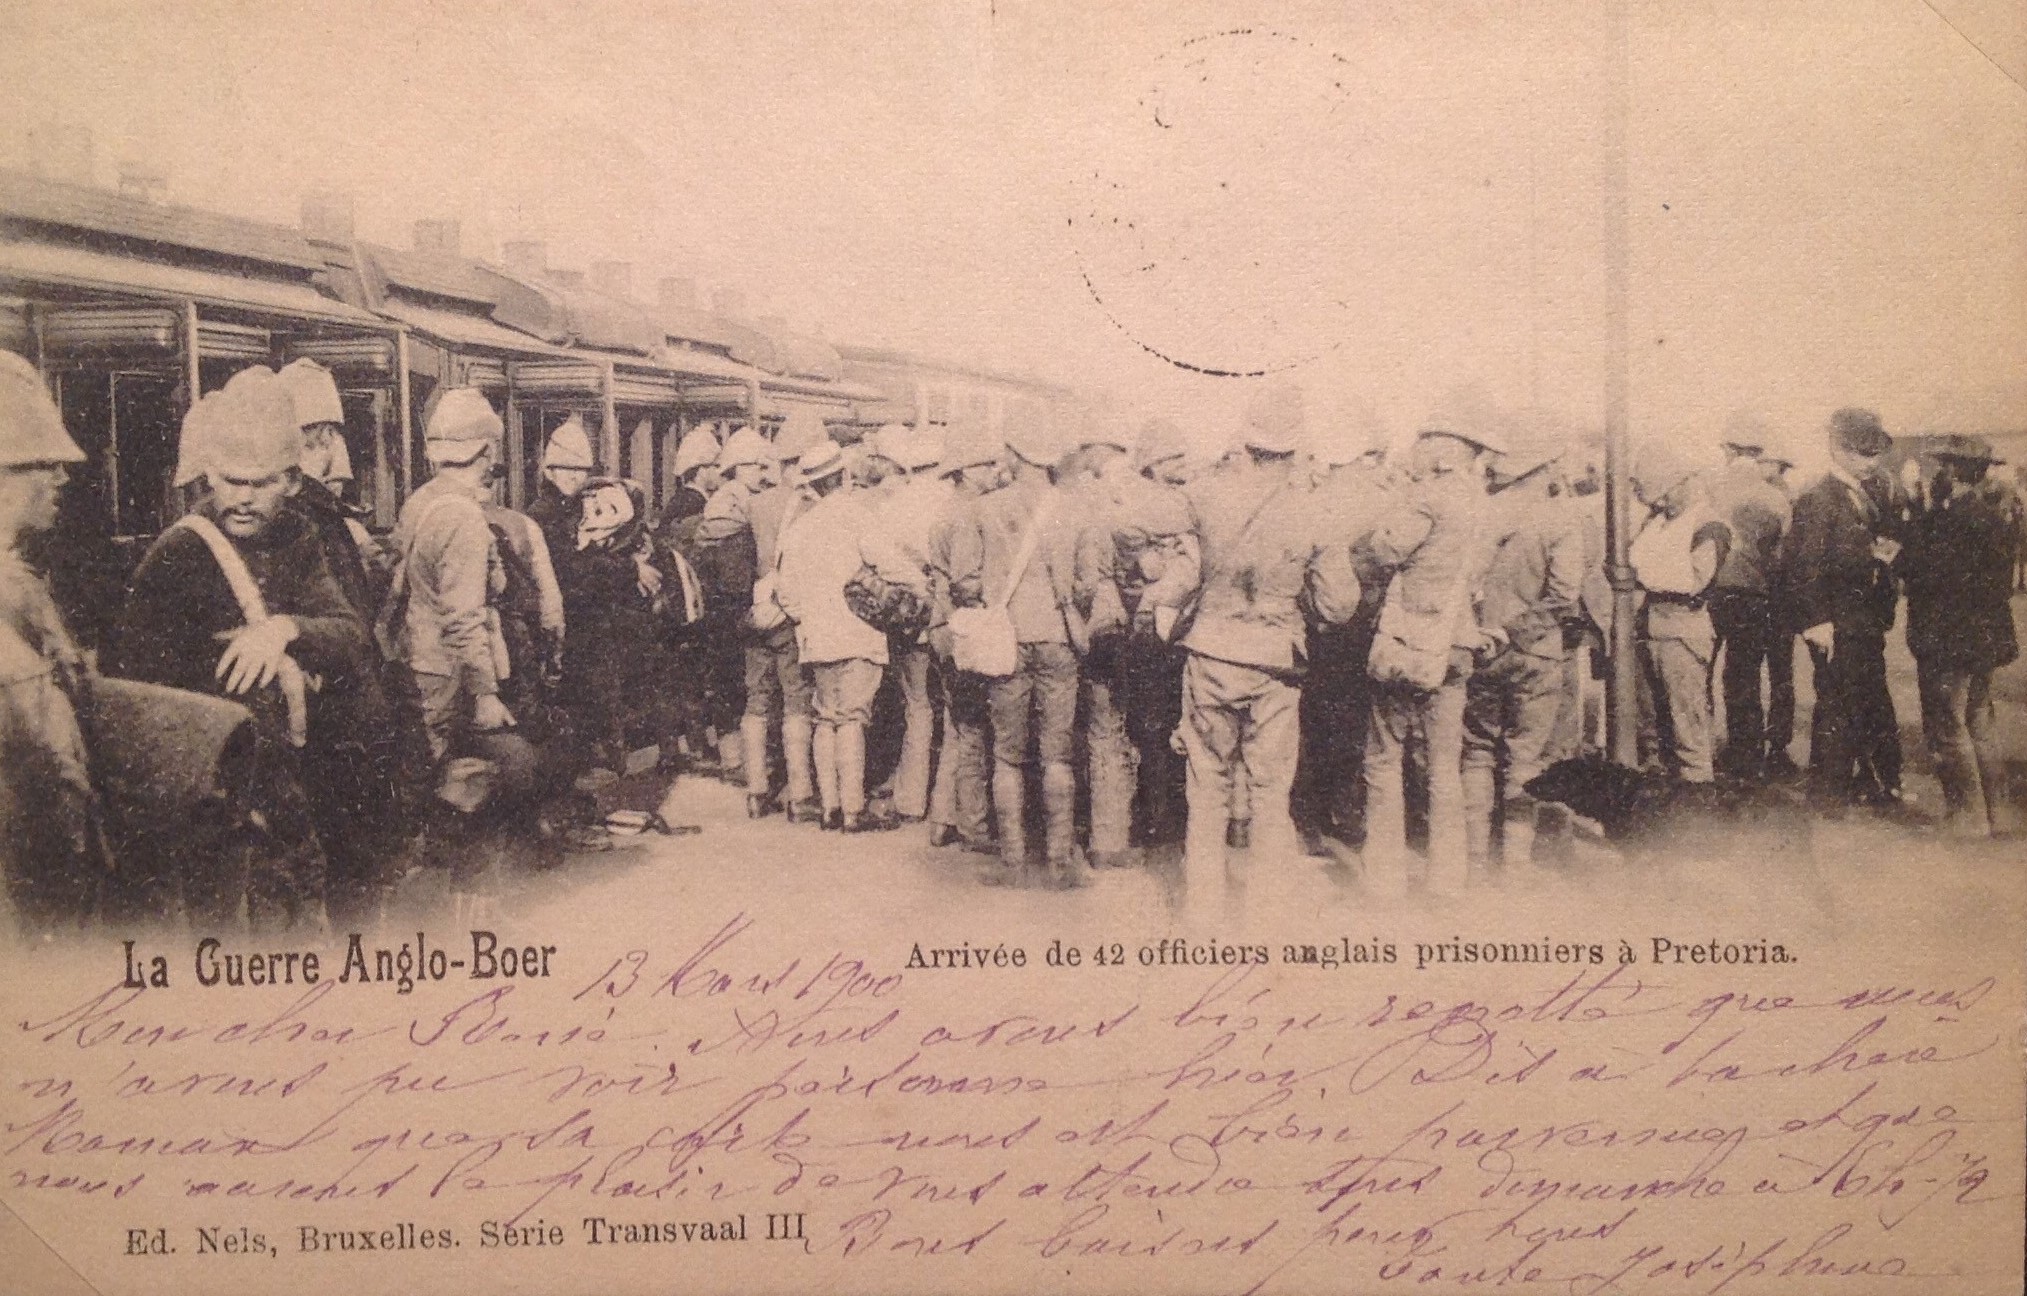 La Guerre Anglo-Boer
13 Mars 1900
Arrivée de 42 officiers anglais prisonniers à Pretoria.
Mon cher René. Nous avons bien regretté que nous
n'avons pu voir personne hier. Dis à ta chère
Maman que sa carte nous est bien parvenue et que
nous aurons le plaisir de vous attendre tous dimanche à 6h-1/2
Ed. Nels, Bruxelles. Série Transvaal III
Bons baisers pour tous
Tante Joséphine